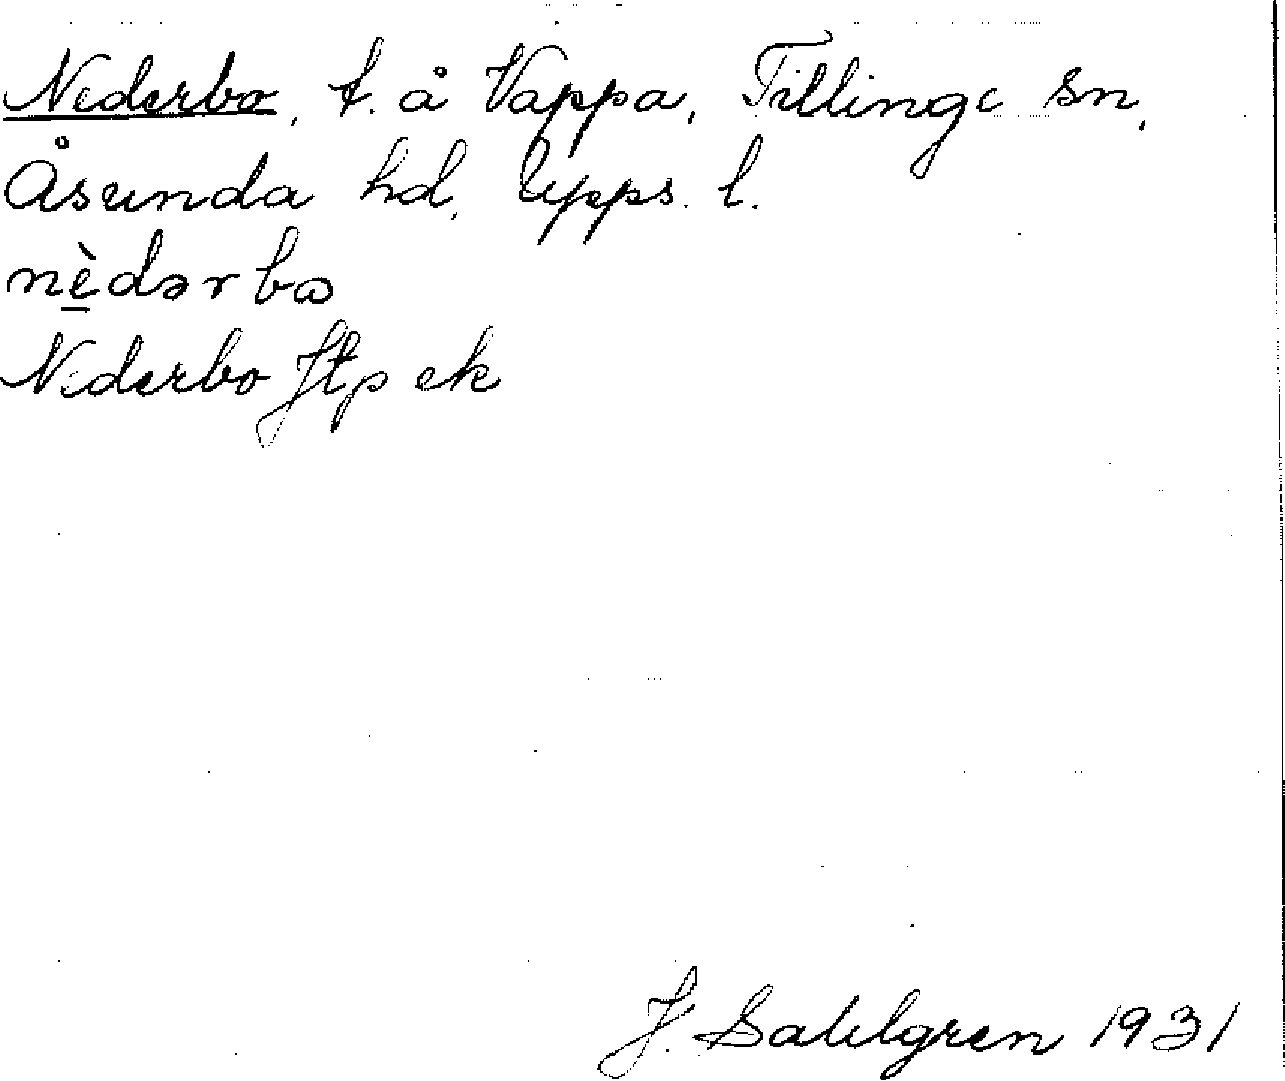 Nederbo, t. å Vappa, Tillinge sn,
Åsunda hd, Upps. l.
nèdərbω
Nederbo Jtp ek
J. Sahlgren 1931